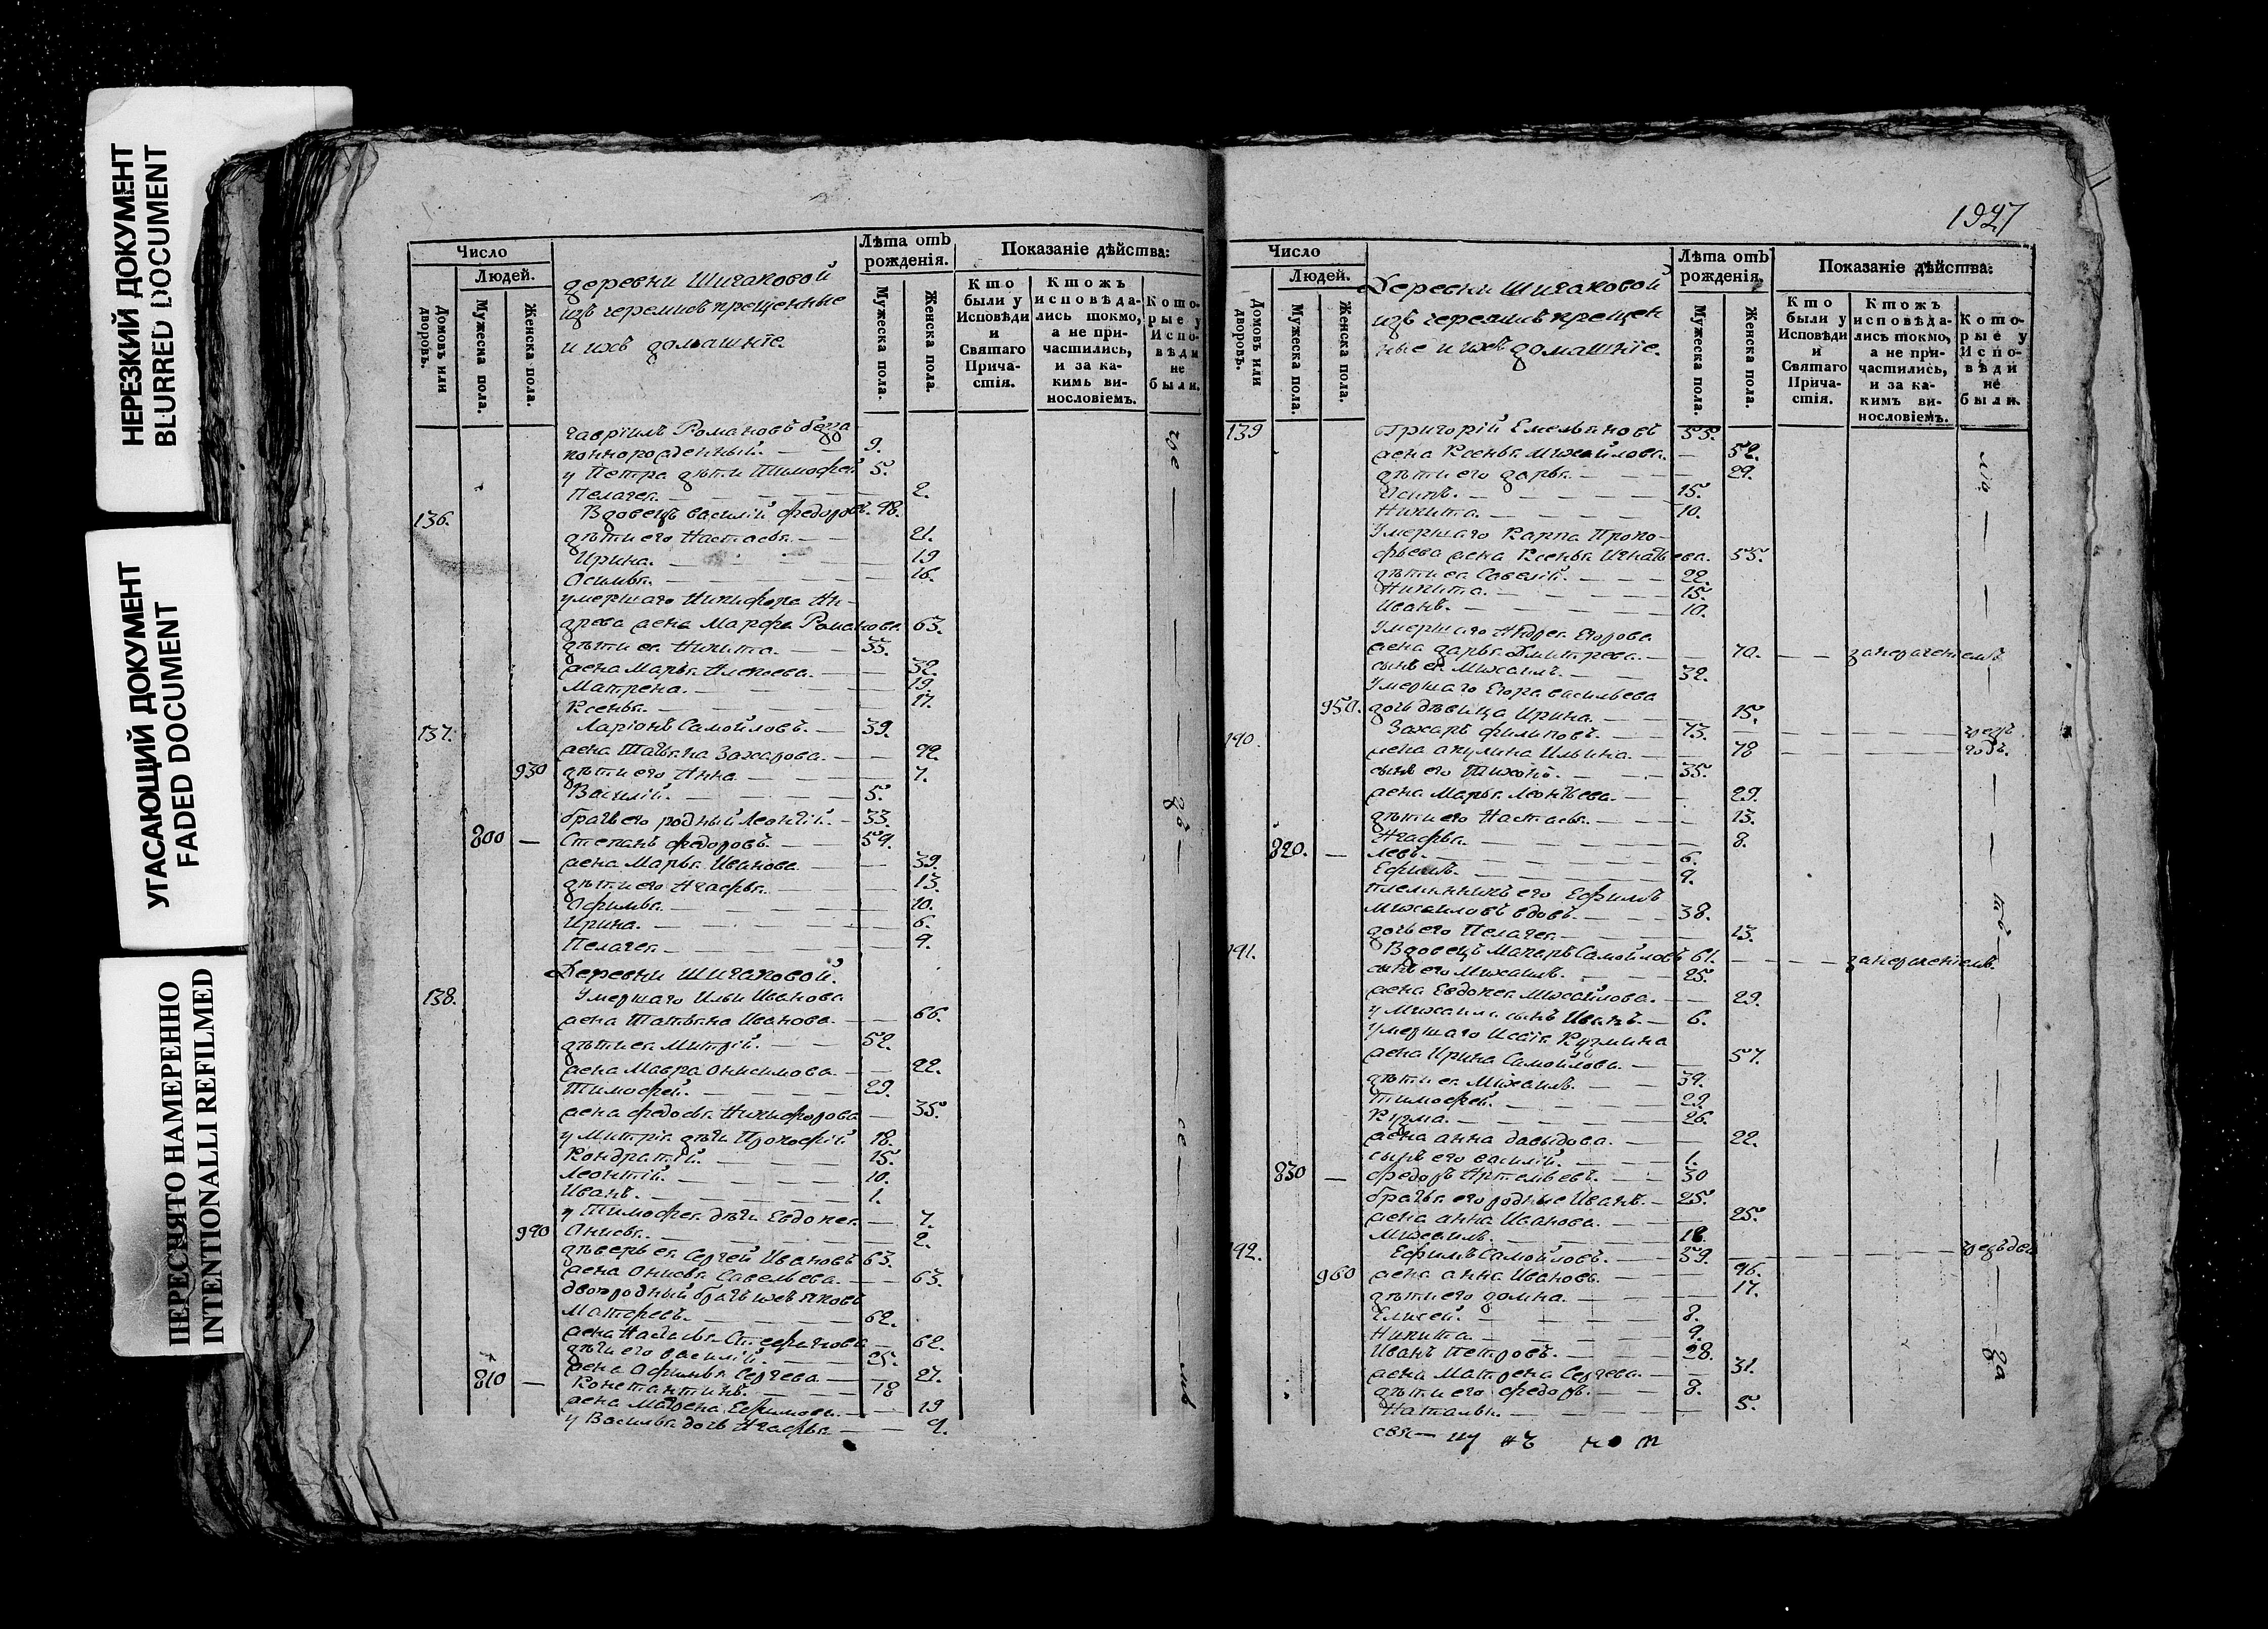 НЕРЕЗКИЙ ДОКУМЕНТ
BLURRED DOCUMENT
УГАСАЮЩИЙ ДОКУМЕНТ
FADED DOCUMENT
ПЕРЕСНЯТО НАМЕРЕННО
INTENTIONALLI REFILMED
Число
Людей.
Домовъ или дворовъ.
Мужеска пола.
Женска пола.
деревни Шигаковой
изъ черемисъ крещенные
и ихъ домашніе.
Лѣта отъ рожденія.
Мужеска пола.
Женска пола.
Показаніе дѣйства:
Кто были у Исповѣди и Святаго Прича-стія.
Ктожъ исповѣда-лись токмо, а не при-частились, и за ка-кимъ ви-нословіемъ.
Кото-рые у Испо-вѣди не были.
гавріилъ Романовъ беза
коннорожденный. 9.
у Петра дѣти Тимофей 5.
Пелагея. 2.
136. Вдовецъ василій федоровъ. 48.
дѣти его Настасья. 21.
Ирина. 19
Осимья. 16.
умершаго Никифора Ан-
дреева жена Марфа Романова 63.
дѣти ея Никита. 33.
жена Марья Алексеева. 32.
Матрена. 19.
Ксенья. 17.
137. Ларіонъ Самойловъ. 39.
жена Татьяна Захарова. 42.
930 дѣти его Анна. 7.
Василій. 5.
братъ его родный Леонтій. 33.
800 Степанъ федоровъ. 54.
жена Марья Иванова. 39.
дѣти его Агафья. 13.
Офимья. 10.
Ирина. 6.
Пелагея. 4.
Деревни Шигаковой.
138. Умершаго Ильи Иванова
жена Татьяна Иванова. 66.
дѣти ея Митрій. 52.
жена Мавра Онисимова. 22.
Тимофей. 29.
жена федосья Никифорова 35.
у Митрія дѣти Прокофій 18.
Кондратій. 15.
Леонтій. 10.
Иванъ. 1.
у Тимофея дѣти Евдокея 7.
940 Анисья. 2.
дѣверь ея Сергей Ивановъ 63.
жена Онисья Савельева. 63.
двоюродный братъ ихъ Яковъ
Матфеевъ. 62.
жена Настасья Стефанова 62.
дѣти его василій. 25.
810 жена Офимья Сергеева 27.
Константинъ. 18
жена Матрена Ефимова. 19
у Василья дочь Агафья 4.
1947
Число
Людей.
Домовъ или дворовъ.
Мужеска пола.
Женска пола.
Деревни Шигаковой
изъ черемисъ крещен
ные и ихъ домашніе.
Лѣта отъ рожденія.
Мужеска пола.
Женска пола.
Показаніе дѣйства:
Кто были у Исповѣди и Святаго Прича-стія.
Ктожъ исповѣда-лись токмо, а не при-частились, и за ка-кимъ ви-нословіемъ.
Кото-рые у Испо-вѣди не были.
139 Григорій Емельяновъ 55.
жена Ксенья Михайлова. 52.
дѣти его дарья. 29.
Осипъ. 15.
Никита. 10.
Умершаго Карпа Проко-
фьева жена Ксенья Игнатьева. 55.
дѣти ея Савелій. 22.
Никита. 15.
Иванъ. 10.
Умершаго Андрея Егорова
жена дарья Дмитрева. 70. за нерачениемъ
сынъ ея Михаилъ. 32.
Умершаго Егора васильева
950. дочь дѣвица Ирина. 15.
140. Захаръ филиповъ. 73.
жена акулина Ильина. 78
сынъ его Тихонъ. 35.
жена Марья Леонтьева. 29.
дѣти его Настасья. 13.
Агафья. 8.
820. Левъ. 6.
Ефимъ. 4.
племянникъ его Ефимъ
Михаиловъ вдовъ. 38.
дочь его Пелагея. 13.
141. Вдовецъ Макаръ Самойловъ 61. за нерачениемъ.
сынъ его Михаилъ. 25.
жена Евдокея Михайлова. 29.
у Михаила сынъ Иванъ. 6.
умершаго Исаія Кузмина
жена Ирина Самойлова. 57.
дѣти ея Михаилъ. 34.
Тимофей. 29.
Кузма. 26.
жена анна давыдова. 22.
сынъ его василій. 1.
830 федоръ Артемьевъ. 30
братья его родные Иванъ. 25.
жена анна Иванова. 25.
Михаилъ. 18.
142. Ефимъ Самойловъ. 59.
960 жена анна Иванова. 46.
дѣти его домна. 17.
Елисей. 8.
Никита. 4.
Иванъ Петровъ. 28.
жена Матрена Сергеева. 31.
дѣти его федоръ. 8.
Наталья. 5.